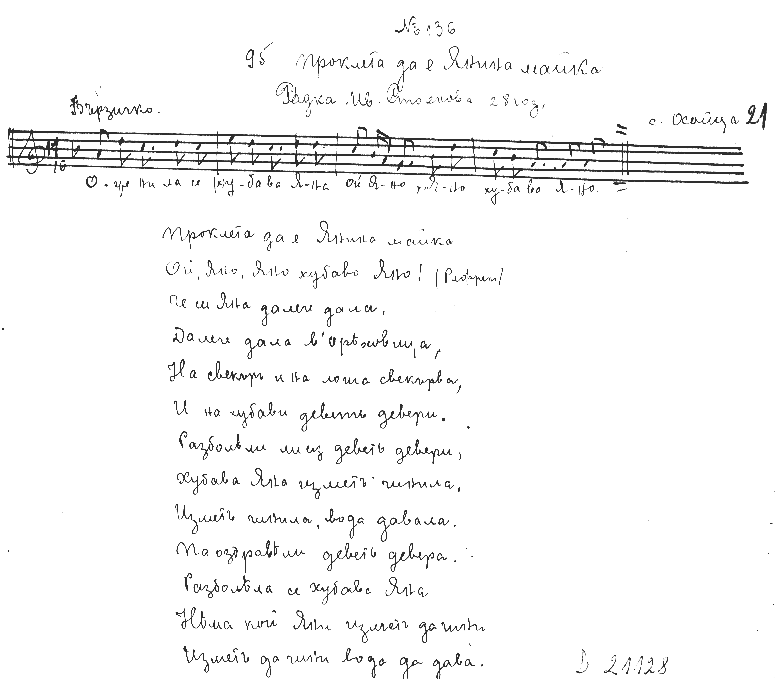 № 136
95 Проклета да е Янина майка
Радка Ив. Стоянова 28 год.
Бързичко.
с. Осойца 21
10
О-же ни ла се ху-бава Я-на ой Я-но, Я-но ху-баво Я-но.
Проклета да е Янина майка
Ой, Яно, Яно хубаво Яно! /Рефрен/
Че си Яна далеče дала,
Далече дала в'Орѣховица,
На свекъръ и на лоша свекърва,
И на хубави деветь девери.
Разболѣли ми се деветь девери,
Хубава Яна изметъ чинила,
Изметъ чинила, вода давала.
Па оздравѣли деветь девера.
Разболѣла се хубава Яна
Нѣма кой Яни изметъ да чини
Изметъ да чини вода да дава.
В 21128